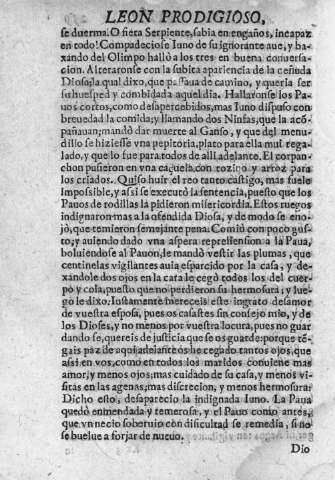 LEON PRODIGIOSO,
se duerma. O fiera Serpiente, sabia en engaños, incapaz
en todo! Compadeciose Iuno de su ignorante aue, y ba-
xando del Olimpo hallò a los tres en buena conuersa-
cion. Alteraronse con la subita apariencia de la ceñuda
Diosa, la qual dixo, que passaua de camino, y queria ser
su huesped, y combidada aquel dia. Hallaronse los Pa-
uos cortos, como desapercebidos, mas Iuno dispuso con
breuedad la comida; y llamando dos Ninfas, que la acõ-
pañauan; mandò dar muerte al Ganso, y que del menu-
dillo se hiziesse vna pepitoria, plato para ella mui rega-
lado, y que lo fue para todos de alli adelante. El corpan-
chon pusieron en vna caçuela con tozino y arroz para
los criados. Quiso huir el reo tanto castigo, mas fuele
imposible, y assi se executò la sentencia, puesto que los
Pauos de rodillas la pidieron misericordia. Estos ruegos
indignaron mas a la ofendida Diosa, y de modo se eno-
jò, que temieron semejante pena. Comiò con poco gus-
to; y auiendo dado vna aspera reprehension a la Paua,
boluiendose al Pauon, le mandò vestir las plumas, que
centinelas vigilantes auia esparcido por la casa, y de-
xandole dos ojos en la cara le cegò todos los del cuer-
po y cola, puesto que no perdieron su hermosura; y lue-
go le dixo. Iustamente mereceis este ingrato desamor
de vuestra esposa, pues os casastes sin consejo mio, y de
los Dioses, y no menos por vuestra locura, pues no guar
dando se, quereis de justicia que se os guarde: porque tẽ-
gais paz de aqui adelante os he cegado tantos ojos, que
assi en vos, como en todos los maridos conuiene mas
amor, y menos ojos; mas cuidado de su casa, y menos vi-
sitas en las agenas; mas discrecion, y menos hermosura.
Dicho esto, desaparecio la indignada Iuno. La Paua
quedò enmendada y temerosa, y el Pauo como antes,
que vn necio soberuio con dificultad se remedia, si no
se buelue a forjar de nueuo.
Dio